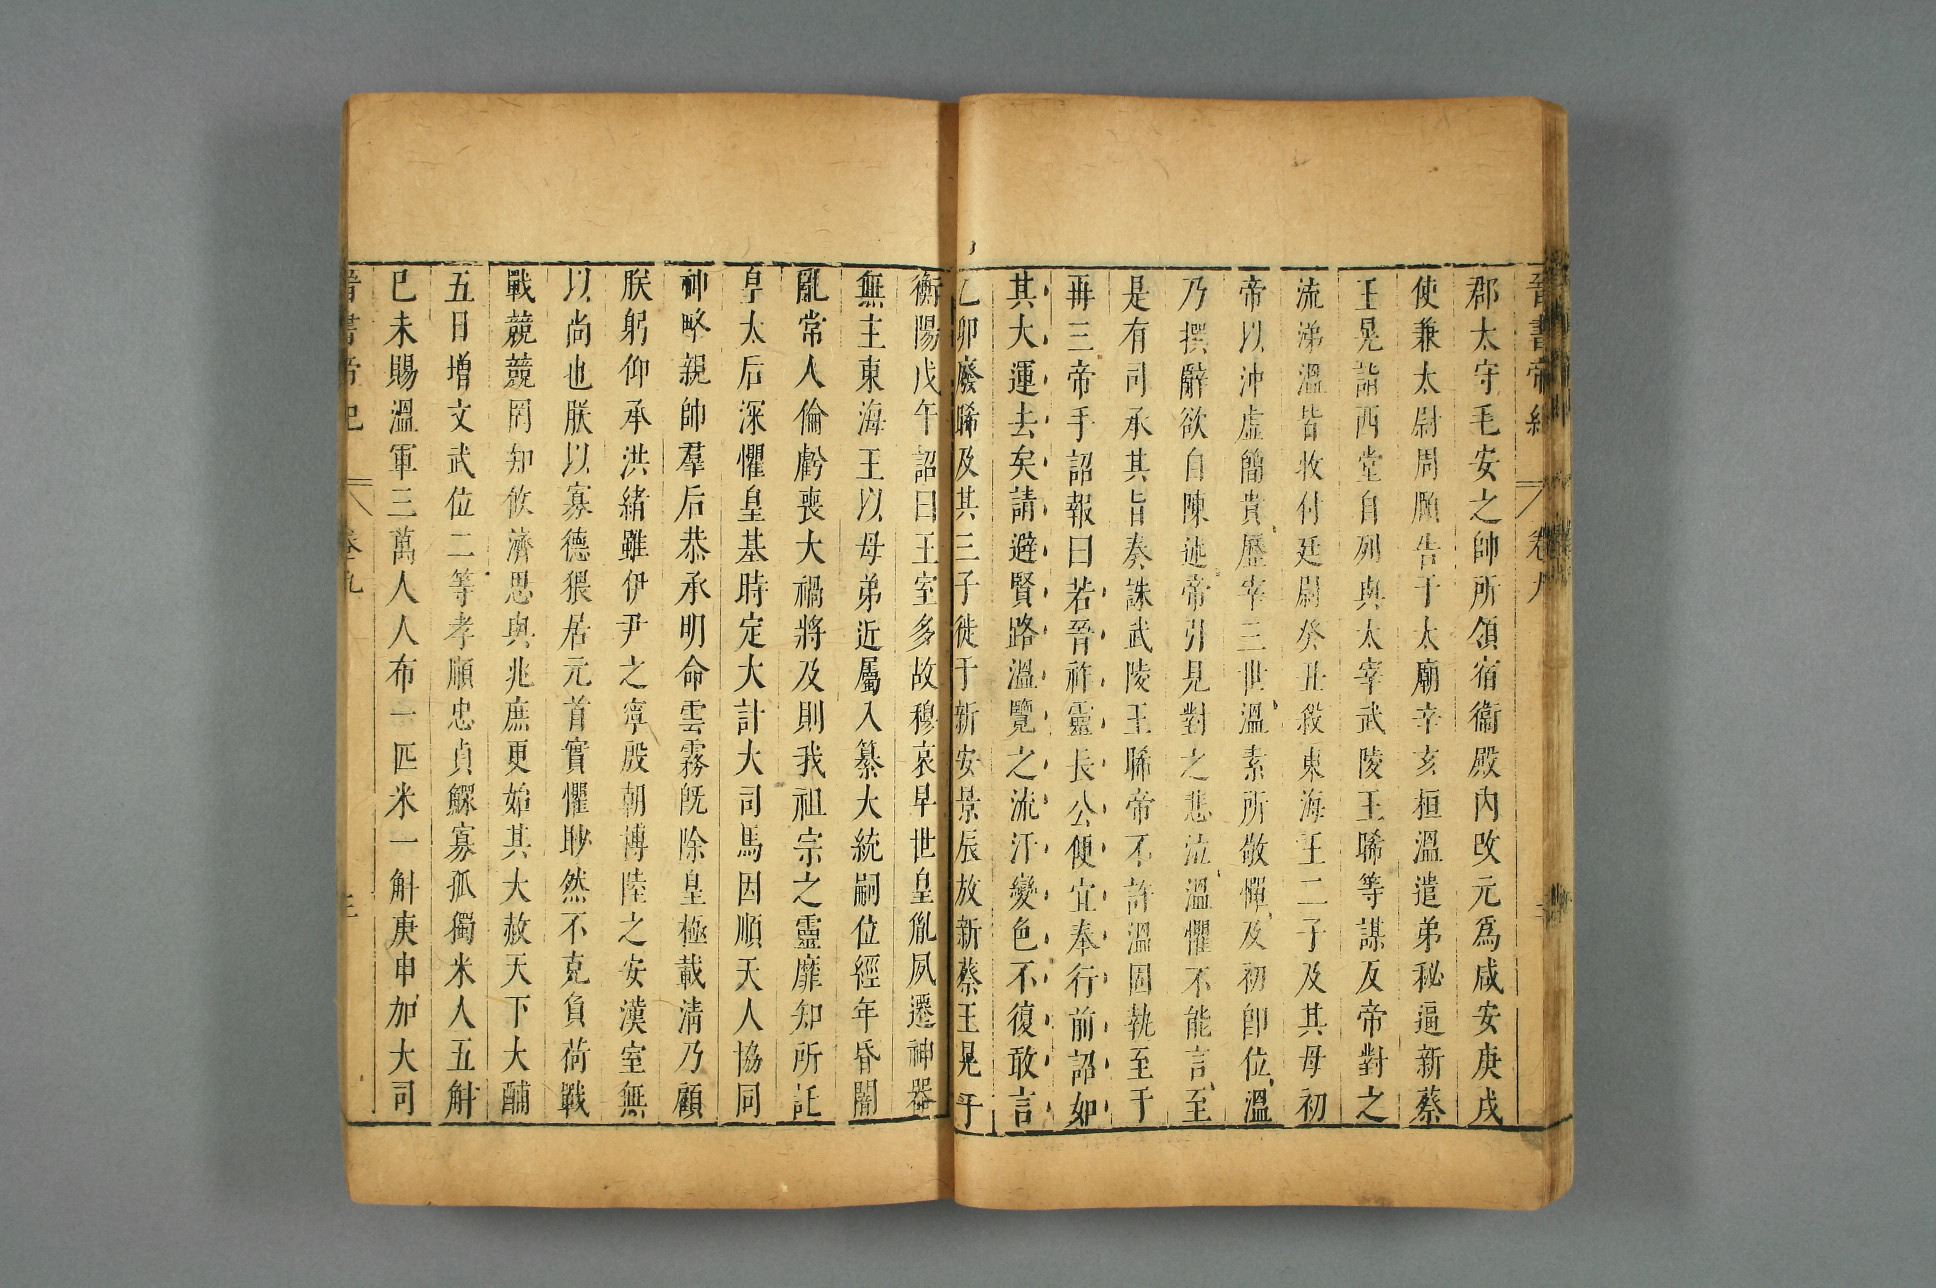 晉書帝紀 卷九
郡太守毛安之帥所領宿衞殿内改元爲咸安庚戌
使兼太尉周頤告于太廟辛亥桓溫遣弟秘逼新蔡
王晃詣西堂自列與太宰武陵王晞等謀反帝對之
流涕溫皆收付廷尉癸丑殺東海王二子及其母初
帝以沖虛簡貴歷宰三世溫素所敬憚及初即位溫
乃撰辭欲自陳述帝引見對之悲泣溫懼不能言至
是有司承其旨奏誅武陵王晞帝不許溫固執至于
再三帝手詔報曰若晉祚靈長公便宜奉行前詔如
其大運去矣請避賢路溫覽之流汗變色不復敢言
乙卯廢晞及其三子徙于新安景辰放新蔡王晃于
衡陽戊午詔曰王室多故穆哀早世皇胤夙遷神器
無主東海王以母弟近屬入纂大統嗣位經年昏闇
亂常人倫虧喪大禍將及則我祖宗之靈靡知所託
皇太后深懼皇基時定大計大司馬因順天人協同
神略親帥羣后恭承明命雲霧旣除皇極載清乃顧
朕躬仰承洪緒雖伊尹之寧殷朝博陸之安漢室無
以尚也朕以寡德猥居元首實懼眇然不克負荷戰
戰兢兢罔知攸濟思與兆庶更始其大赦天下大酺
五日增文武位二等孝順忠貞鰥寡孤獨米人五斛
已未賜溫軍三萬人人布一匹米一斛庚申加大司
晉書帝紀 卷九 三